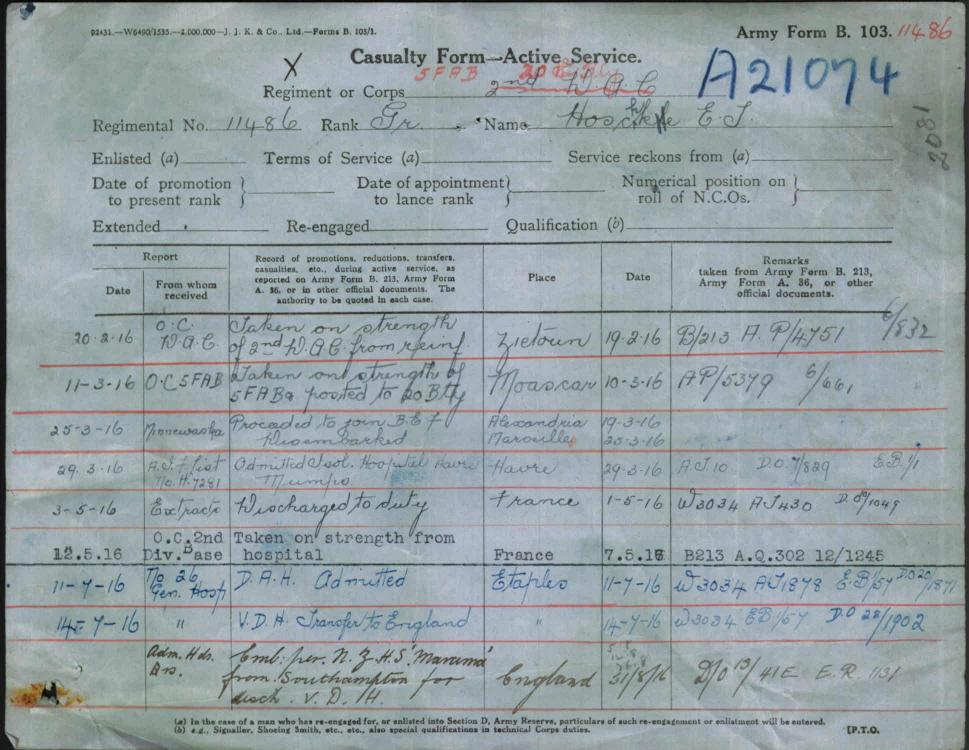 92431.—W6490/1535.—2,000,000—J. J. K. & Co., Ltd.—Forms B. 103/1.
Army Form B. 103. 11486
Casualty Form—Active Service.
X
5 FAB
Regiment or Corps 2nd D.A.C
A21074
Regimental No. 11486 Rank Gr. Name E. J.
2081
Enlisted (a) Terms of Service (a) Service reckons from (a)
Date of promotion to present rank } Date of appointment to lance rank } Numerical position on roll of N.C.Os. }
Extended Re-engaged Qualification (b)
Report
Date
From whom received
Record of promotions, reductions, transfers,
casualties, etc., during active service, as
reported on Army Form B. 213, Army Form
A. 36, or in other official documents. The
authority to be quoted in each case.
Place
Date
Remarks
taken from Army Form B. 213,
Army Form A. 36, or other
official documents.
20-2-16 O.C. D.A.C. Taken on strength of 2nd D.A.C. from reinf. Zietoun 19.2.16 B/213 A.P/4751 6/832
11-3-16 O.C 5FAB Taken on strength of 5FABg posted to 20 Bty Moascar 10-3-16 AP/5379 6/661
25-3-16 Minnewaska Proceded to join B.E.F Alexandria 19-3-16
Disembarked Marseilles 25-3-16
29.3-16 A.I.F. List No. H.7281 Admitted Isol. Hospital Havre Mumps. Havre 29-3-16 A.J10 D.O.7/829 E.B.1/1
3-5-16 Extracts Discharged to duty France 1-5-16 W3034 AJ430 D.O9/1049
12.5.16 O.C.2nd Div.Base Taken on strength from hospital France 7.5.16 B213 A.Q.302 12/1245
11-7-16 No 26 Gen. Hosp D.A.H. Admitted Etaples 11-7-16 W3034 AJ1878 E.B/57 D.O 20/1871
14-7-16 " V.D.H. Transfer to England " 14-7-16 W3034 EB/57 D.O 22/1902
Adm. Hds. Emb: per. N.Z.H.S 'Marama' from Southampton for disch. V.D.H. England 31/8/16 D/O 13/41E E.R. 1131
(a) In the case of a man who has re-engaged for, or enlisted into Section D, Army Reserve, particulars of such re-engagement or enlistment will be entered.
(b) e.g., Signaller, Shoeing Smith, etc., etc., also special qualifications in technical Corps duties.
[P.T.O.